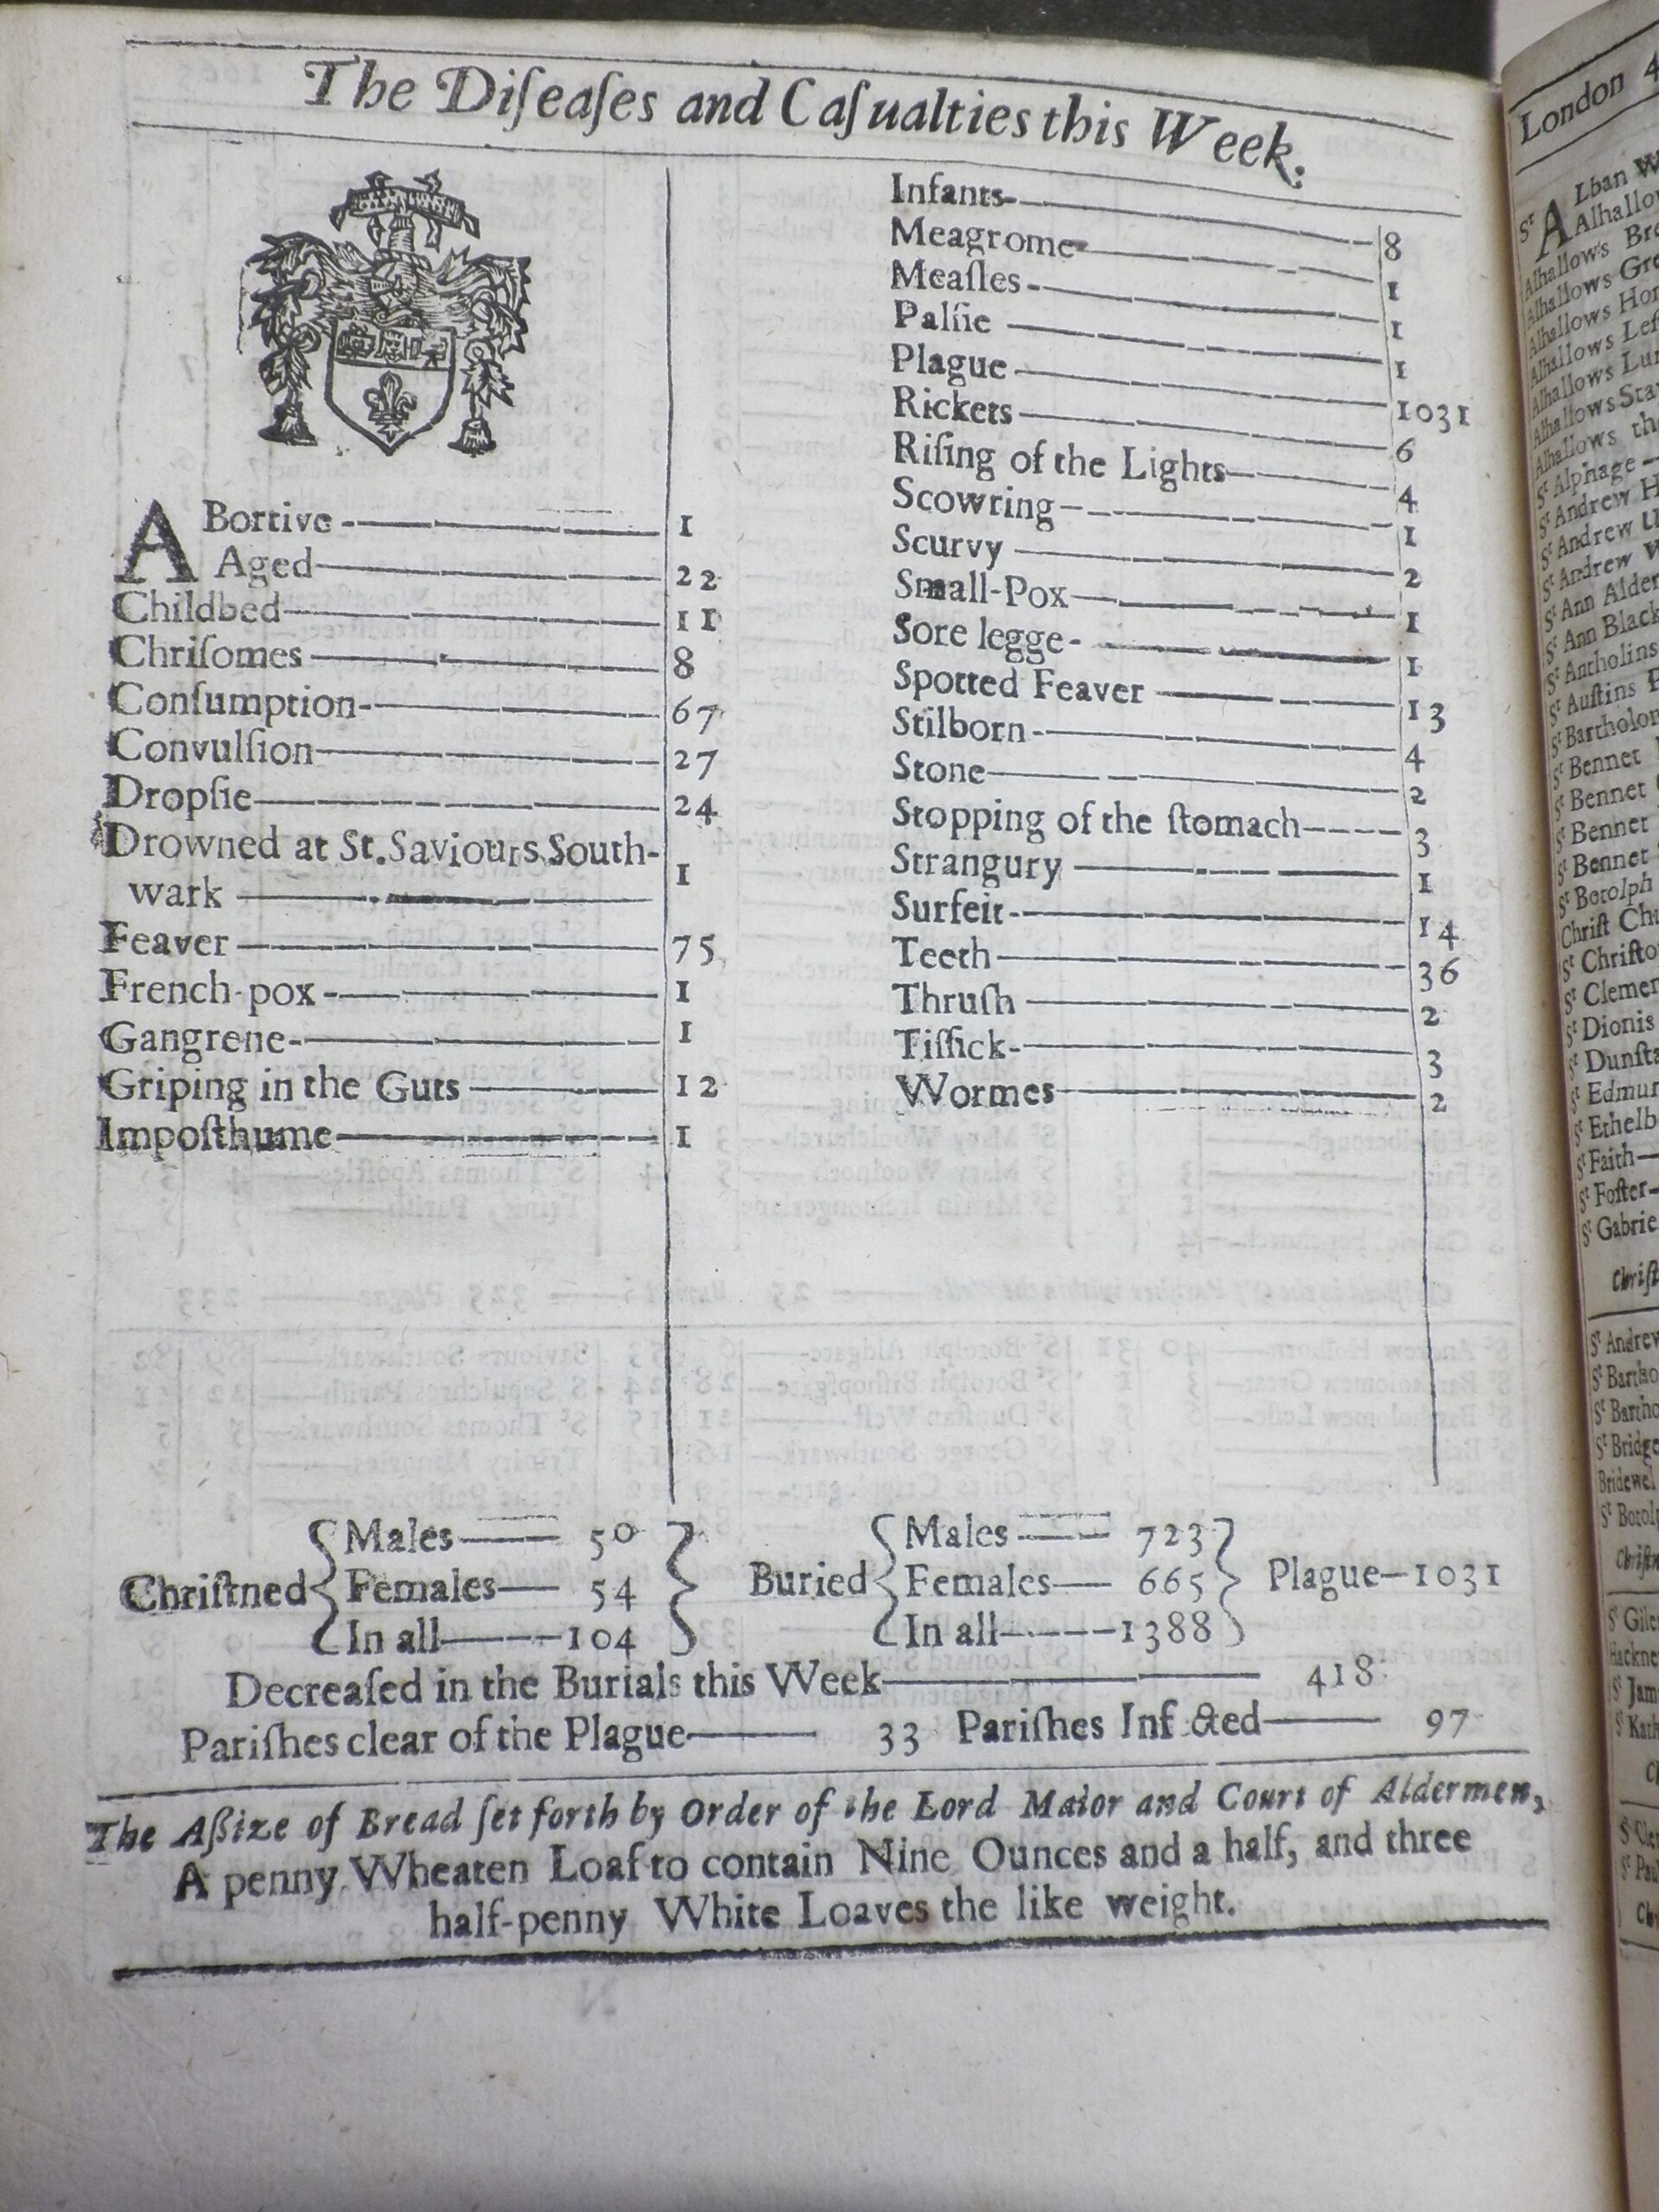 The Diſeaſes and Caſualties this Week.
ABortive 1
Aged 22
Childbed 11
Chriſomes 8
Conſumption 67
Convulſion 27
Dropſie 24
Drowned at St. Saviours South-
wark 1
Feaver 75
French-pox 1
Gangrene 1
Griping in the Guts 12
Impoſthume 1
Infants 8
Meagrome 1
Meaſles 1
Palſie 1
Plague 1031
Rickets 6
Riſing of the Lights 4
Scowring 1
Scurvy 2
Small-Pox 1
Sore legge 1
Spotted Feaver 13
Stilborn 4
Stone 2
Stopping of the ſtomach 3
Strangury 1
Surfeit 14
Teeth 36
Thruſh 2
Tiſſick 3
Wormes 2
Chriſtned
Males 50
Females 54
In all 104
Buried
Males 723
Females 665
In all 1388
Plague 1031
Decreaſed in the Burials this Week 418
Pariſhes clear of the Plague 33 Pariſhes Inf cted 97
The Aſſize of Bread ſet forth by Order of the Lord Maior and Court of Aldermen,
A penny Wheaten Loaf to contain Nine Ounces and a half, and three
half-penny White Loaves the like weight.
London 4
St ALban W
Alhallow
Alhallows Bre
Alhallows Gre
Alhallows Hon
Alhallows Leſ
Alhallows Lum
Alhallows Sta
Alhallows the
St Alphage
St Andrew H
St Andrew U
St Andrew W
St Ann Alder
St Ann Black
St Antholins
St Auſtins P
St Bartholom
St Bennet
St Bennet
St Bennet
St Bennet
St Botolph
Chriſt Chu
St Chriſto
St Clemen
St Dionis
St Dunſta
St Edmun
St Ethelb
St Faith
St Foſter
St Gabrie
Chriſt
St Andrew
St Bartho
St Bartho
St Bridge
Bridewel
St Botolp
Chriſtn
St Giles
Hackne
St Jam
St Kath
St Cle
St Pau